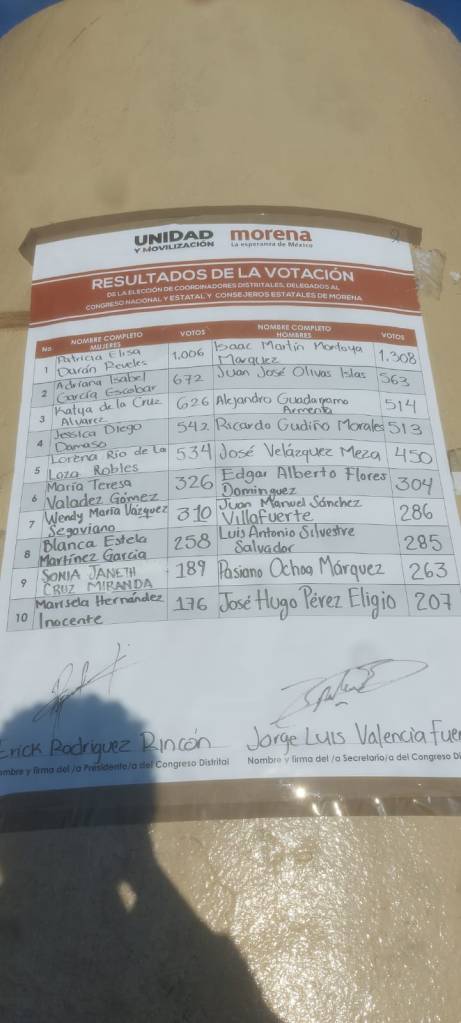 UNIDAD
Y MOVILIZACIÓN
morena
La esperanza de México
RESULTADOS DE LA VOTACIÓN
DE LA ELECCIÓN DE COORDINADORES DISTRITALES, DELEGADOS AL
CONGRESO NACIONAL Y ESTATAL Y CONSEJEROS ESTATALES DE MORENA
No. NOMBRE COMPLETO MUJERES VOTOS NOMBRE COMPLETO HOMBRES VOTOS
1 Patricia Elisa Durán Reveles 1,006 Isaac Martín Montoya Márquez 1,308
2 Adriana Isabel García Escobar 672 Juan José Olivas Islas 563
3 Katya de la Cruz Alvarez 626 Alejandro Guadarramo Armenta 514
4 Jessica Diego Damaso 542 Ricardo Gudiño Morales 513
5 Lorena Río de la Loza Robles 534 José Velázquez Meza 450
6 María Teresa Valadez Gómez 326 Edgar Alberto Flores Domínguez 304
7 Wendy María Vázquez Segoviano 310 Juan Manuel Sánchez Villafuerte 286
8 Blanca Estela Martínez García 258 Luis Antonio Silvestre Salvador 285
9 SONIA JANETH CRUZ MIRANDA 189 Pasiano Ochoa Márquez 263
10 Marisela Hernández Inocente 176 José Hugo Pérez Eligio 207
Erick Rodriguez Rincón Jorge Luis Valencia Fuer
ombre y firma del /a Presidente/a del Congreso Distrital Nombre y firma del /a Secretario/a del Congreso Di